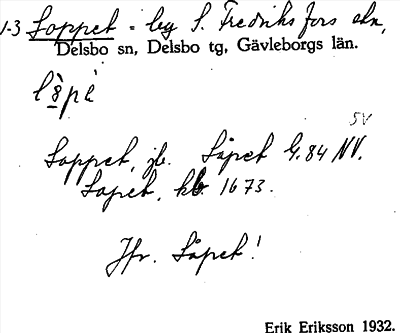 1-3 Loppet = lag S. Fredriksfors eln,
Delsbo sn, Delsbo tg, Gävleborgs län.
Loppet, jb. Låpet G. 84 NV.
SV
Lopet, kb. 1673.
Jfr. Låpet!
Erik Eriksson 1932.